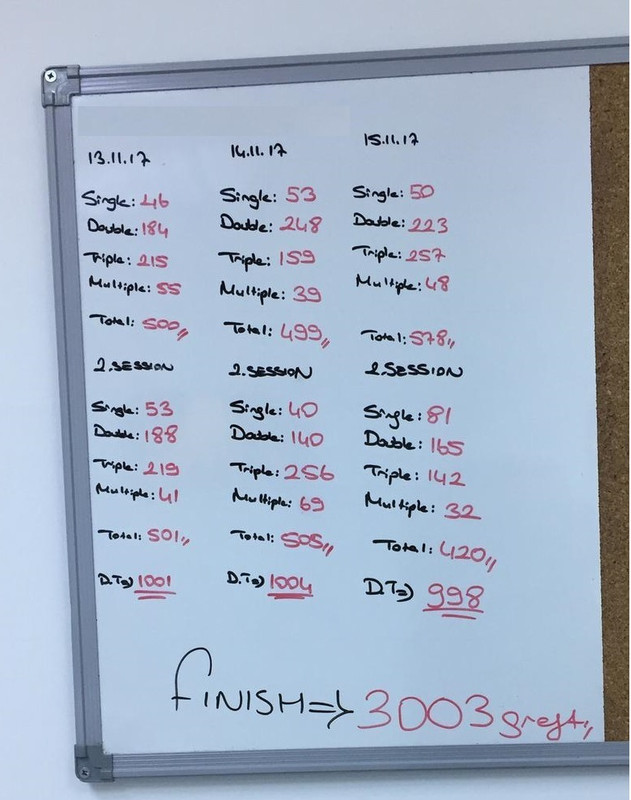 13.11.17
Single: 46
Double: 184
Triple: 215
Multiple: 55
Total: 500,,
2.SESSION
Single: 53
Double: 188
Triple: 219
Multiple: 41
Total: 501,,
D.T⇒ 1001
14.11.17
Single: 53
Double: 248
Triple: 159
Multiple: 39
Total: 499,,
2.SESSION
Single: 40
Double: 140
Triple: 256
Multiple: 69
Total: 505,,
D.T⇒ 1004
15.11.17
Single: 50
Double: 223
Triple: 257
Multiple: 48
Total: 578,,
2.SESSION
Single: 81
Double: 165
Triple: 142
Multiple: 32
Total: 420,,
D.T⇒ 998
FINISH⇒ 3003 greft,,